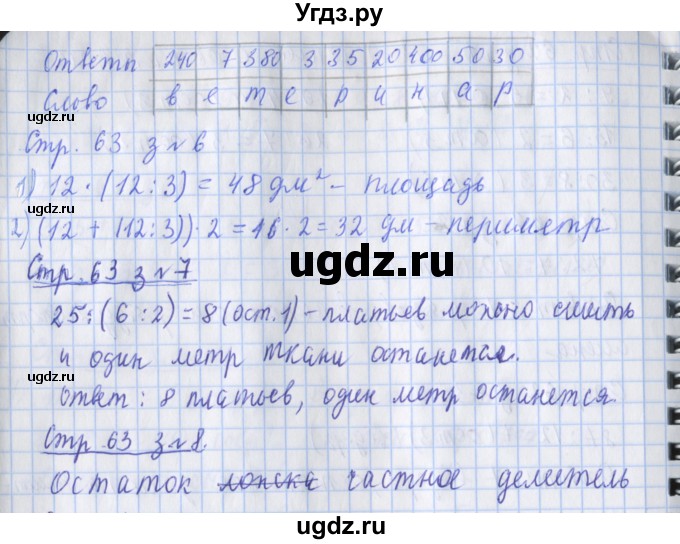 Угдз.ру
Ответы 240 7 380 3 35 20 400 50 30
Слово в е т е р и н а р
Стр. 63 з № 6
1) 12 · (12 : 3) = 48 дм² – площадь
2) (12 + (12 : 3)) · 2 = 16 · 2 = 32 дм – периметр
Стр. 63 з № 7
25 : (6 : 2) = 8 (ост. 1) – платьев можно сшить
и один метр ткани останется.
Ответ : 8 платьев, один метр останется
Стр 63 з № 8.
Остаток частное делитель
ugdz.ru
ugdz.ru
ugdz.ru
ugdz.ru
ugdz.ru
ugdz.ru
ugdz.ru
ugdz.ru